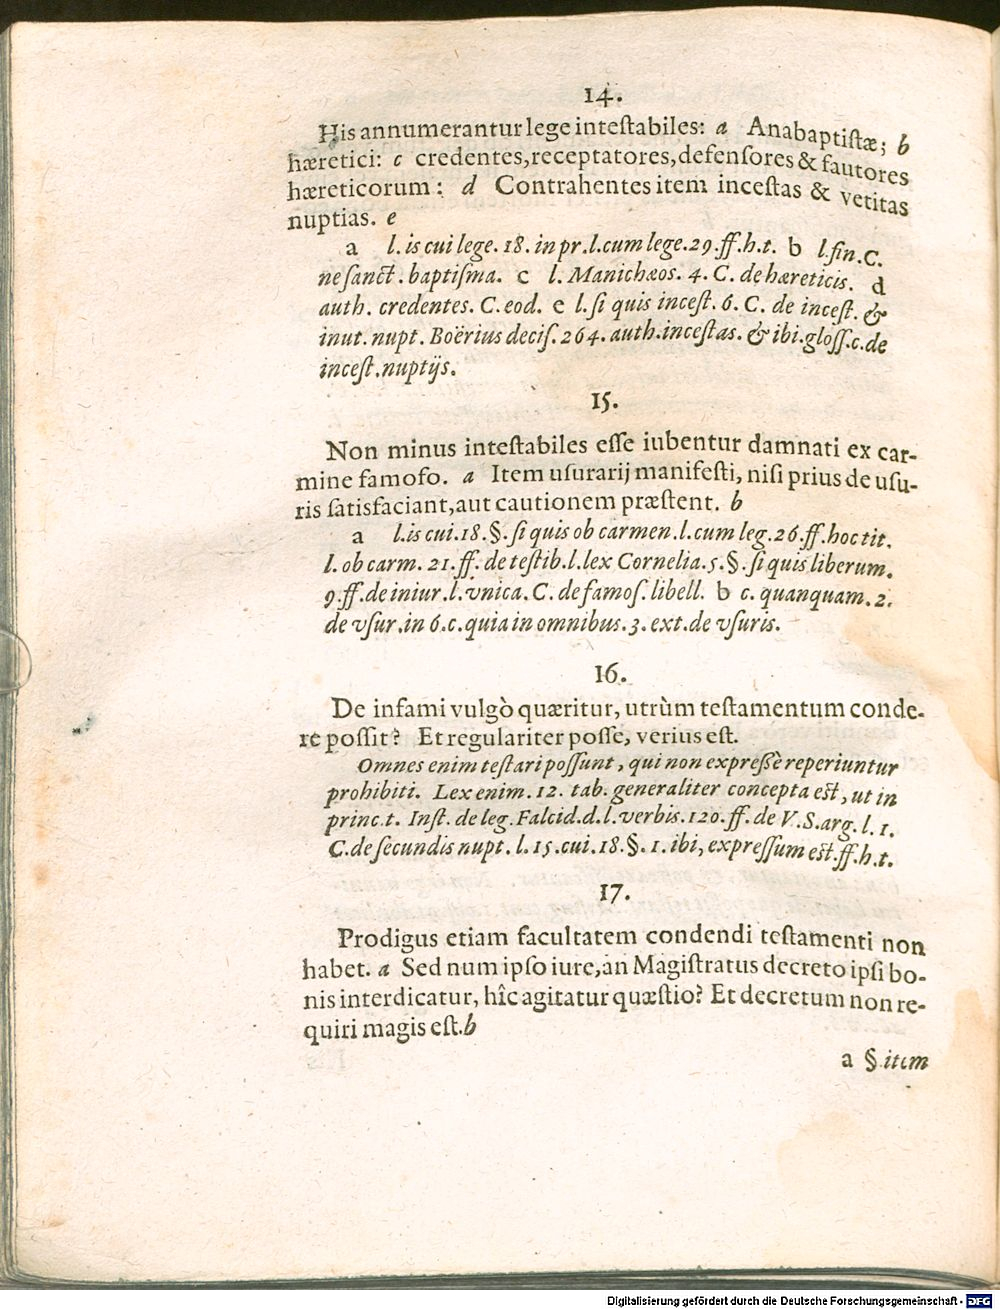 14.
His annumerantur lege intestabiles: a Anabaptistæ; b
hæretici: c credentes, receptatores, defensores & fautores
hæreticorum: d Contrahentes item incestas & vetitas
nuptias. e
a l. is cui lege. 18. in pr. l. cum lege. 29. ff. h. t. b l. fin. C.
ne sanct. baptisma. c l. Manichæos. 4. C. de hæreticis. d
auth. credentes. C. eod. e l. si quis incest. 6. C. de incest. &
inut. nupt. Boërius decis. 264. auth. incestas. & ibi. gloss. c. de
incest. nuptijs.
15.
Non minus intestabiles esse iubentur damnati ex car-
mine famoso. a Item usurarij manifesti, nisi prius de usu-
ris satisfaciant, aut cautionem præstent. b
a l. is cui. 18. §. si quis ob carmen. l. cum leg. 26. ff. hoc tit.
l. ob carm. 21. ff. de testib. l. lex Cornelia. 5. §. si quis liberum.
9. ff. de iniur. l. vnica. C. de famos. libell. b c. quanquam. 2.
de vsur. in 6. c. quia in omnibus. 3. ext. de vsuris.
16.
De infami vulgò quæritur, utrùm testamentum conde-
re possit? Et regulariter posse, verius est.
Omnes enim testari possunt, qui non expressè reperiuntur
prohibiti. Lex enim. 12. tab. generaliter concepta est, ut in
princ. t. Inst. de leg. Falcid. d. l. verbis. 120. ff. de V. S. arg. l. 1.
C. de secundis nupt. l. 15. cui. 18. §. 1. ibi, expressum est. ff. h. t.
17.
Prodigus etiam facultatem condendi testamenti non
habet. a Sed num ipso iure, an Magistratus decreto ipsi bo-
nis interdicatur, hîc agitatur quæstio? Et decretum non re-
quiri magis est. b
a § item
Digitalisierung gefördert durch die Deutsche Forschungsgemeinschaft - DFG